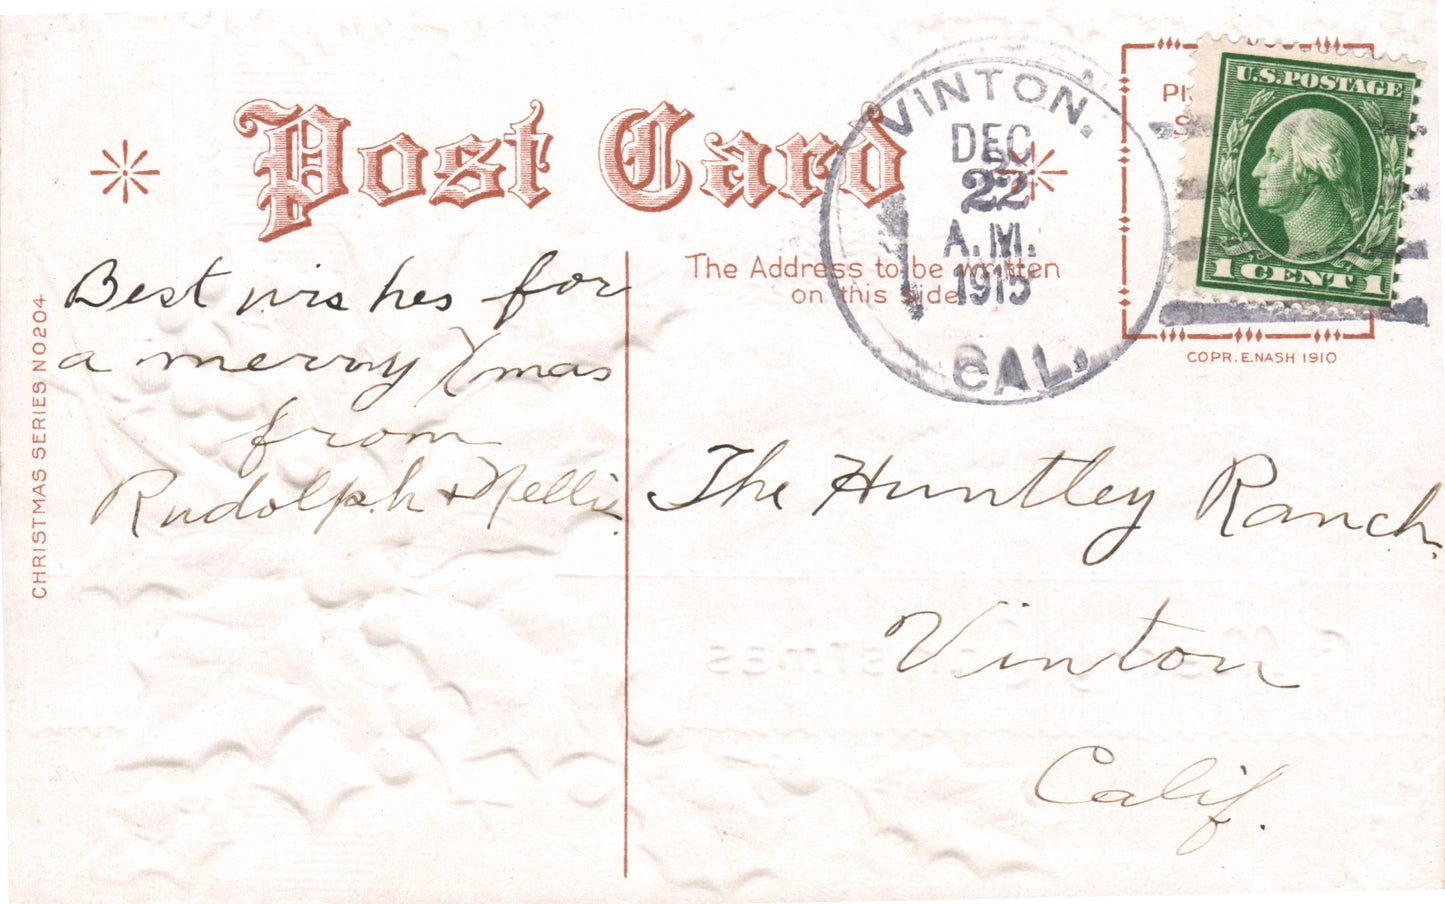 Post Card
VINTON.
DEC
22
A.M.
1915
CAL.
U.S. POSTAGE
1 CENT 1
The Address to be written
on this side
COPR. E. NASH 1910
CHRISTMAS SERIES NO 204
Best wishes for
a merry Xmas
from
Rudolph + Nellie.
The Huntley Ranch.
Vinton
Calif.